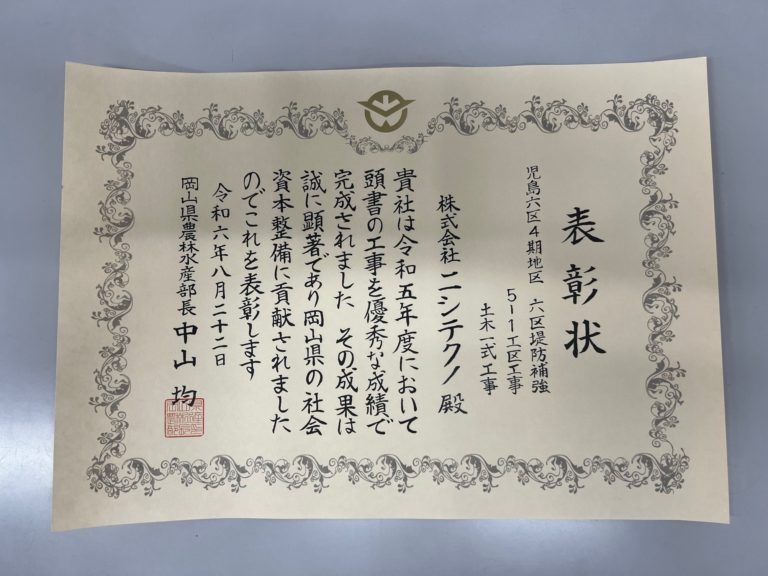 表彰状
児島六区4期地区 六区堤防補強
5-1工区工事
土木一式工事
株式会社ニシテクノ殿
貴社は令和五年度において
頭書の工事を優秀な成績で
完成されました その成果は
誠に顕著であり岡山県の社会
資本整備に貢献されました
のでこれを表彰します
令和六年八月二十二日
岡山県農林水産部長 中山 均